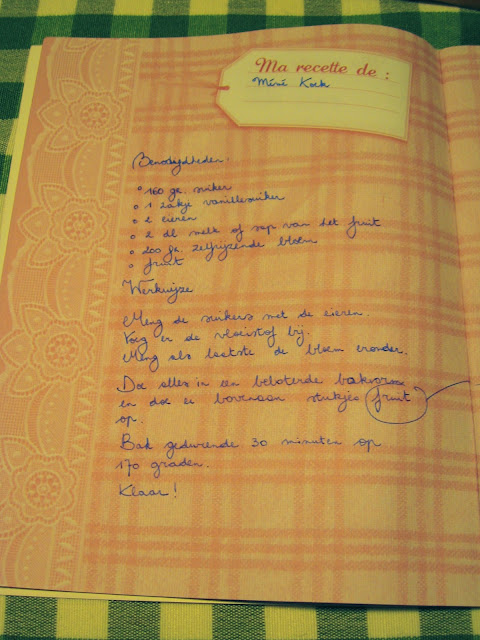 Ma recette de :
Méné Koek
Benodigdheden:
° 160 gr. suiker
° 1 zakje vanillesuiker
° 2 eieren
° 2 dl melk of sap van het fruit
° 200 gr. zelfrijzende bloem
° fruit
Werkwijze
Meng de suikers met de eieren.
Voeg er de vloeistof bij.
Meng als laatste de bloem eronder.
Doe alles in een beboterde bakvorm
en doe er bovenaan stukjes fruit
op.
Bak gedurende 30 minuten op
170 graden.
Klaar!